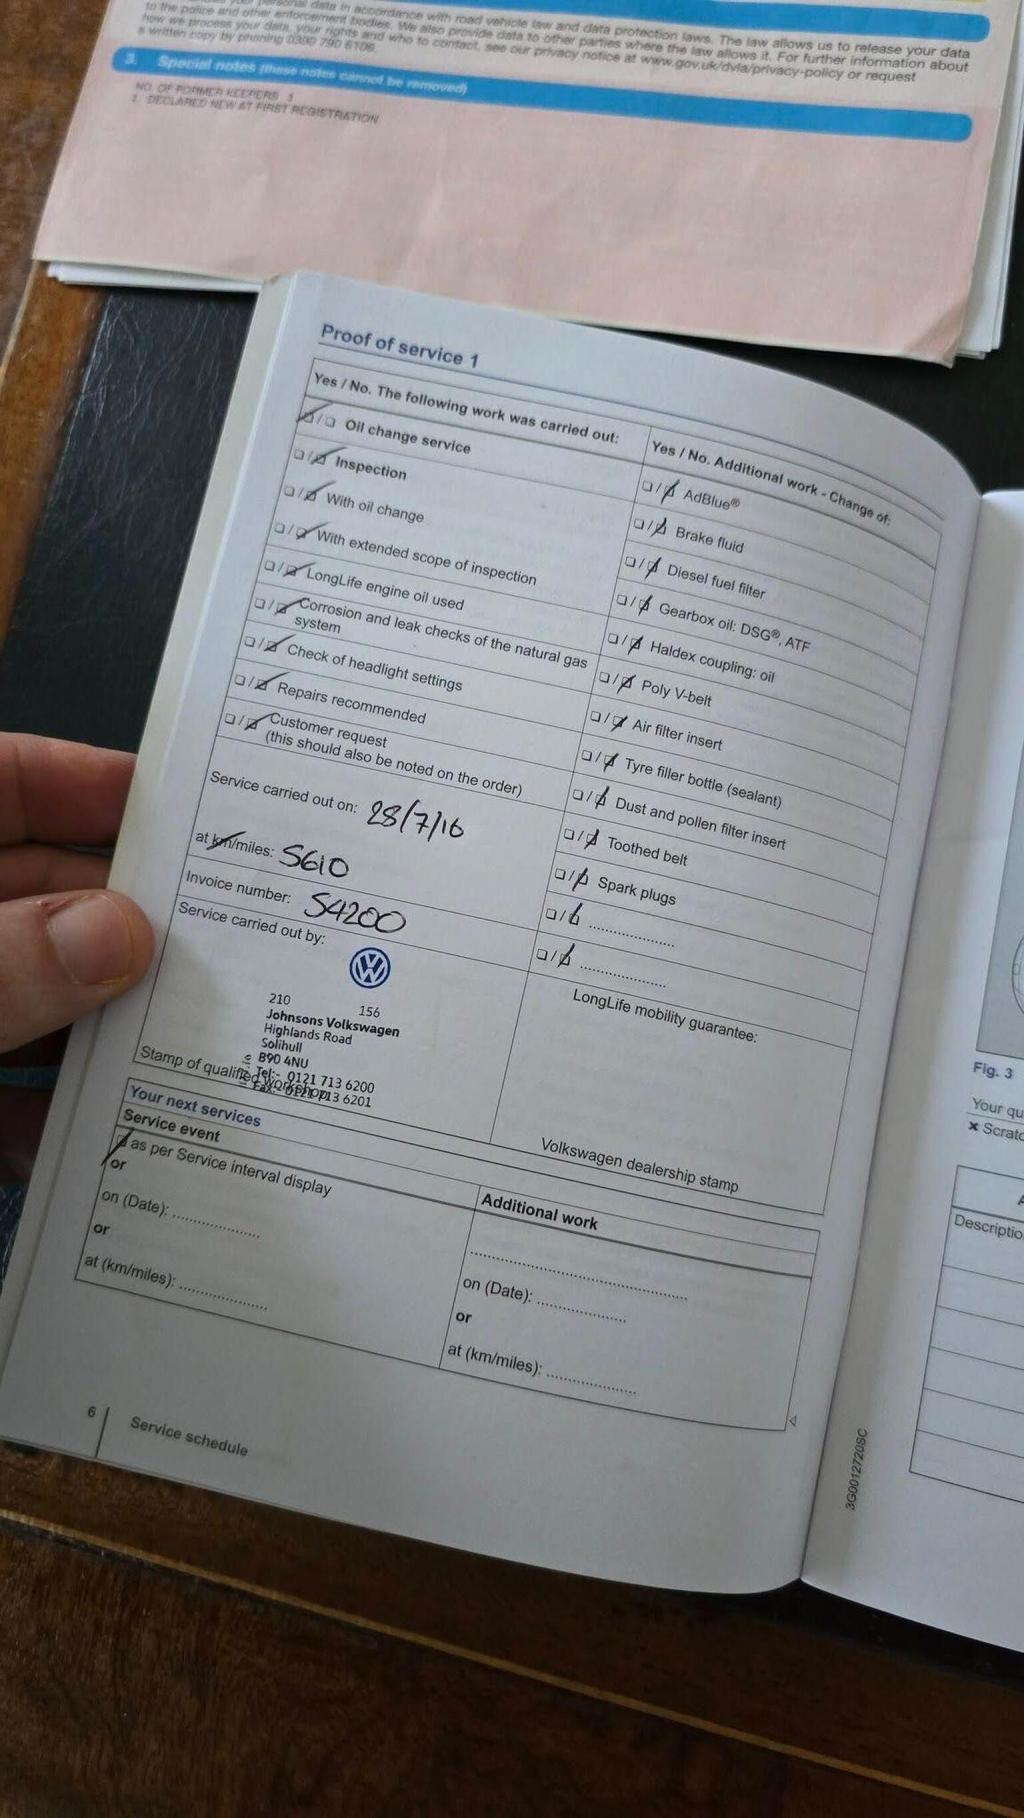 personal data in accordance with road vehicle law and data protection laws. The law allows us to release your data
to the police and other enforcement bodies. We also provide data to other parties where the law allows it. For further information about
how we process your data, your rights and who to contact, see our privacy notice at www.gov.uk/dvla/privacy-policy or request
a written copy by phoning 0300 790 6106.
3. Special notes (these notes cannot be removed)
NO. OF FORMER KEEPERS 1
1. DECLARED NEW AT FIRST REGISTRATION
Proof of service 1
Yes / No. The following work was carried out:
Oil change service
Inspection
With oil change
With extended scope of inspection
LongLife engine oil used
Corrosion and leak checks of the natural gas
system
Check of headlight settings
Repairs recommended
Customer request
(this should also be noted on the order)
Service carried out on: 28/7/16
at km/miles: 5610
Invoice number: 54200
Service carried out by:
210 156
Johnsons Volkswagen
Highlands Road
Solihull
B90 4NU
Tel:- 0121 713 6200
Fax:- 0121 713 6201
Stamp of qualified workshop
Yes / No. Additional work - Change of:
AdBlue®
Brake fluid
Diesel fuel filter
Gearbox oil: DSG®, ATF
Haldex coupling: oil
Poly V-belt
Air filter insert
Tyre filler bottle (sealant)
Dust and pollen filter insert
Toothed belt
Spark plugs
LongLife mobility guarantee:
Volkswagen dealership stamp
Your next services
Service event
as per Service interval display
or
on (Date): ....................
or
at (km/miles): ....................
Additional work
on (Date): ....................
or
at (km/miles): ....................
6 Service schedule
3G0012720SC
Fig. 3
Your qu
× Scratc
Descriptio